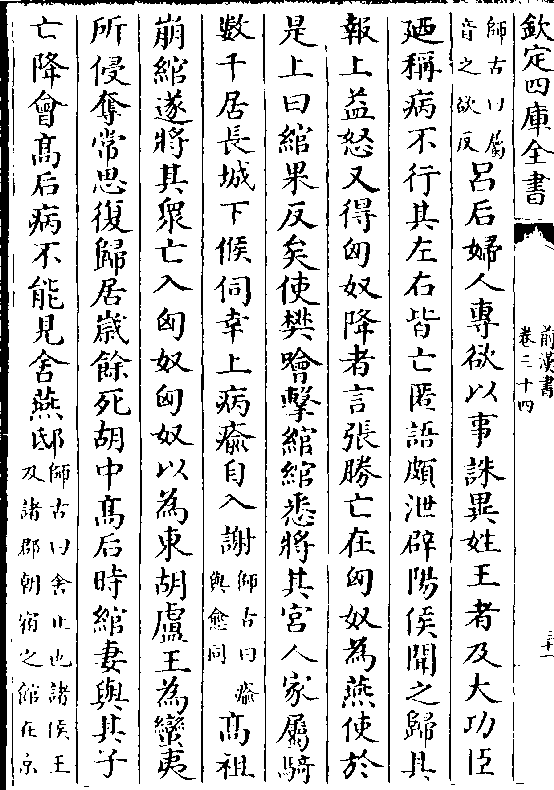 欽定四庫全書
前漢書
卷三十四
三十一
師古曰屬
音之欲反
呂后婦人專欲以事誅異姓王者及大功臣
廼稱病不行其左右皆亡匿語頗泄辟陽侯聞之歸具
報上益怒又得匈奴降者言張勝亡在匈奴為燕使於
是上曰綰果反矣使樊噲擊綰綰悉將其宮人家屬騎
數千居長城下候伺幸上病瘉自入謝
師古曰瘉
與愈同
高祖
崩綰遂將其衆亡入匈奴匈奴以為東胡盧王為蠻夷
所侵奪常思復歸居歲餘死胡中高后時綰妻與其子
亡降會高后病不能見舍燕邸
師古曰舍止也諸侯王
及諸郡朝宿之館在京